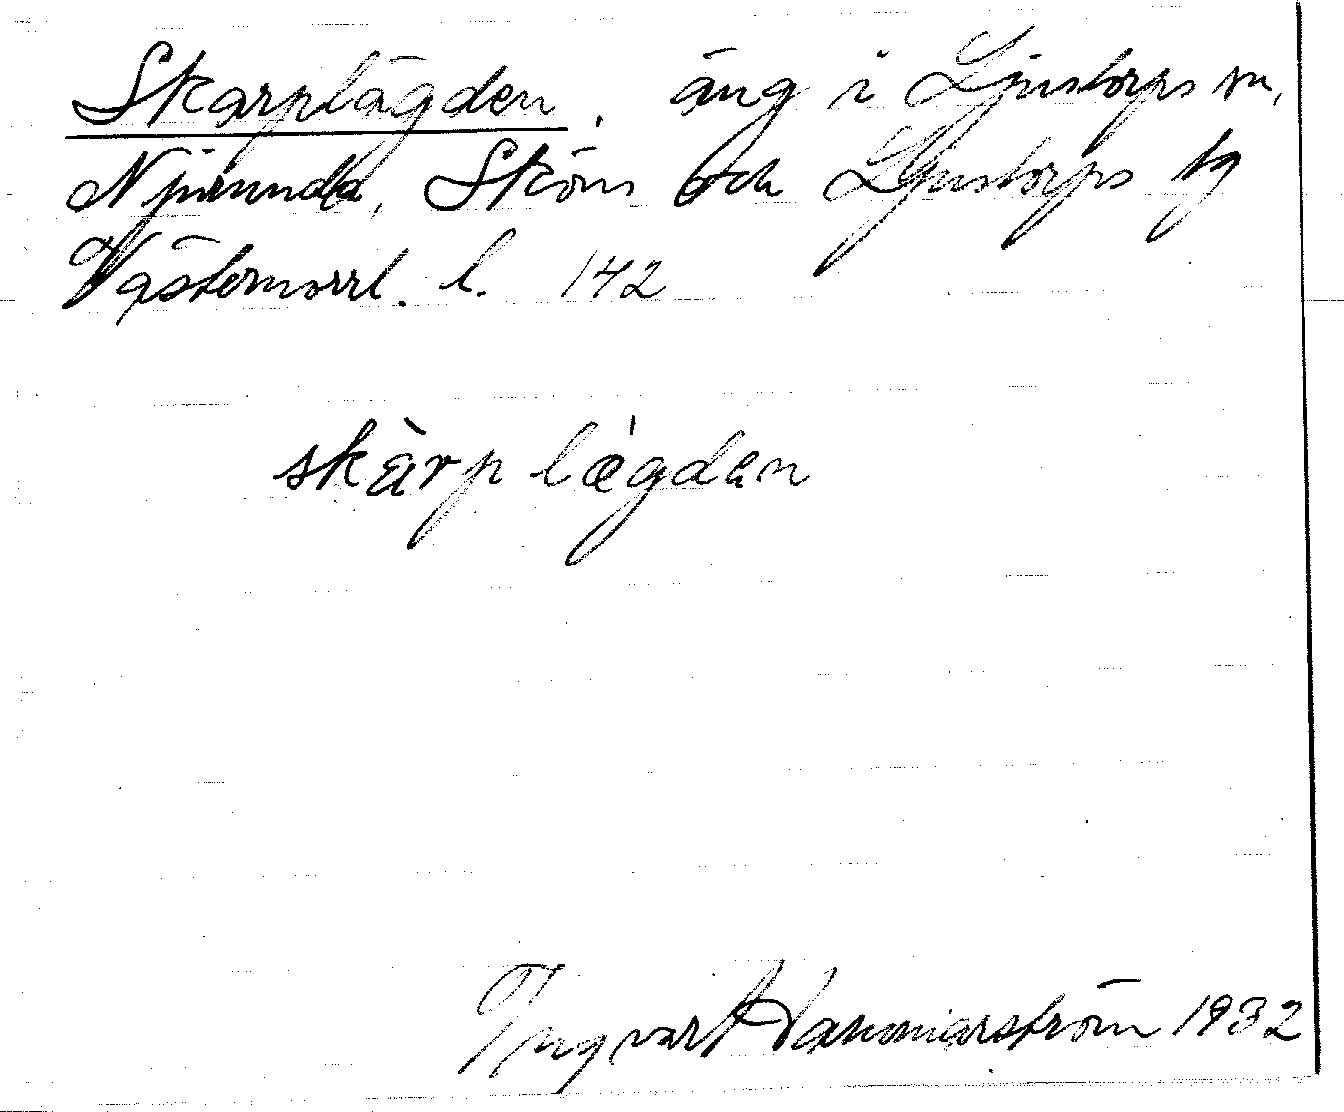 Skarplägden, äng i Ljustorps sn,
Njurunda, Sköns och Ljustorps tg
Västernorrl. l. 142
skàrplægdan
Ingvar Hammarström 1932